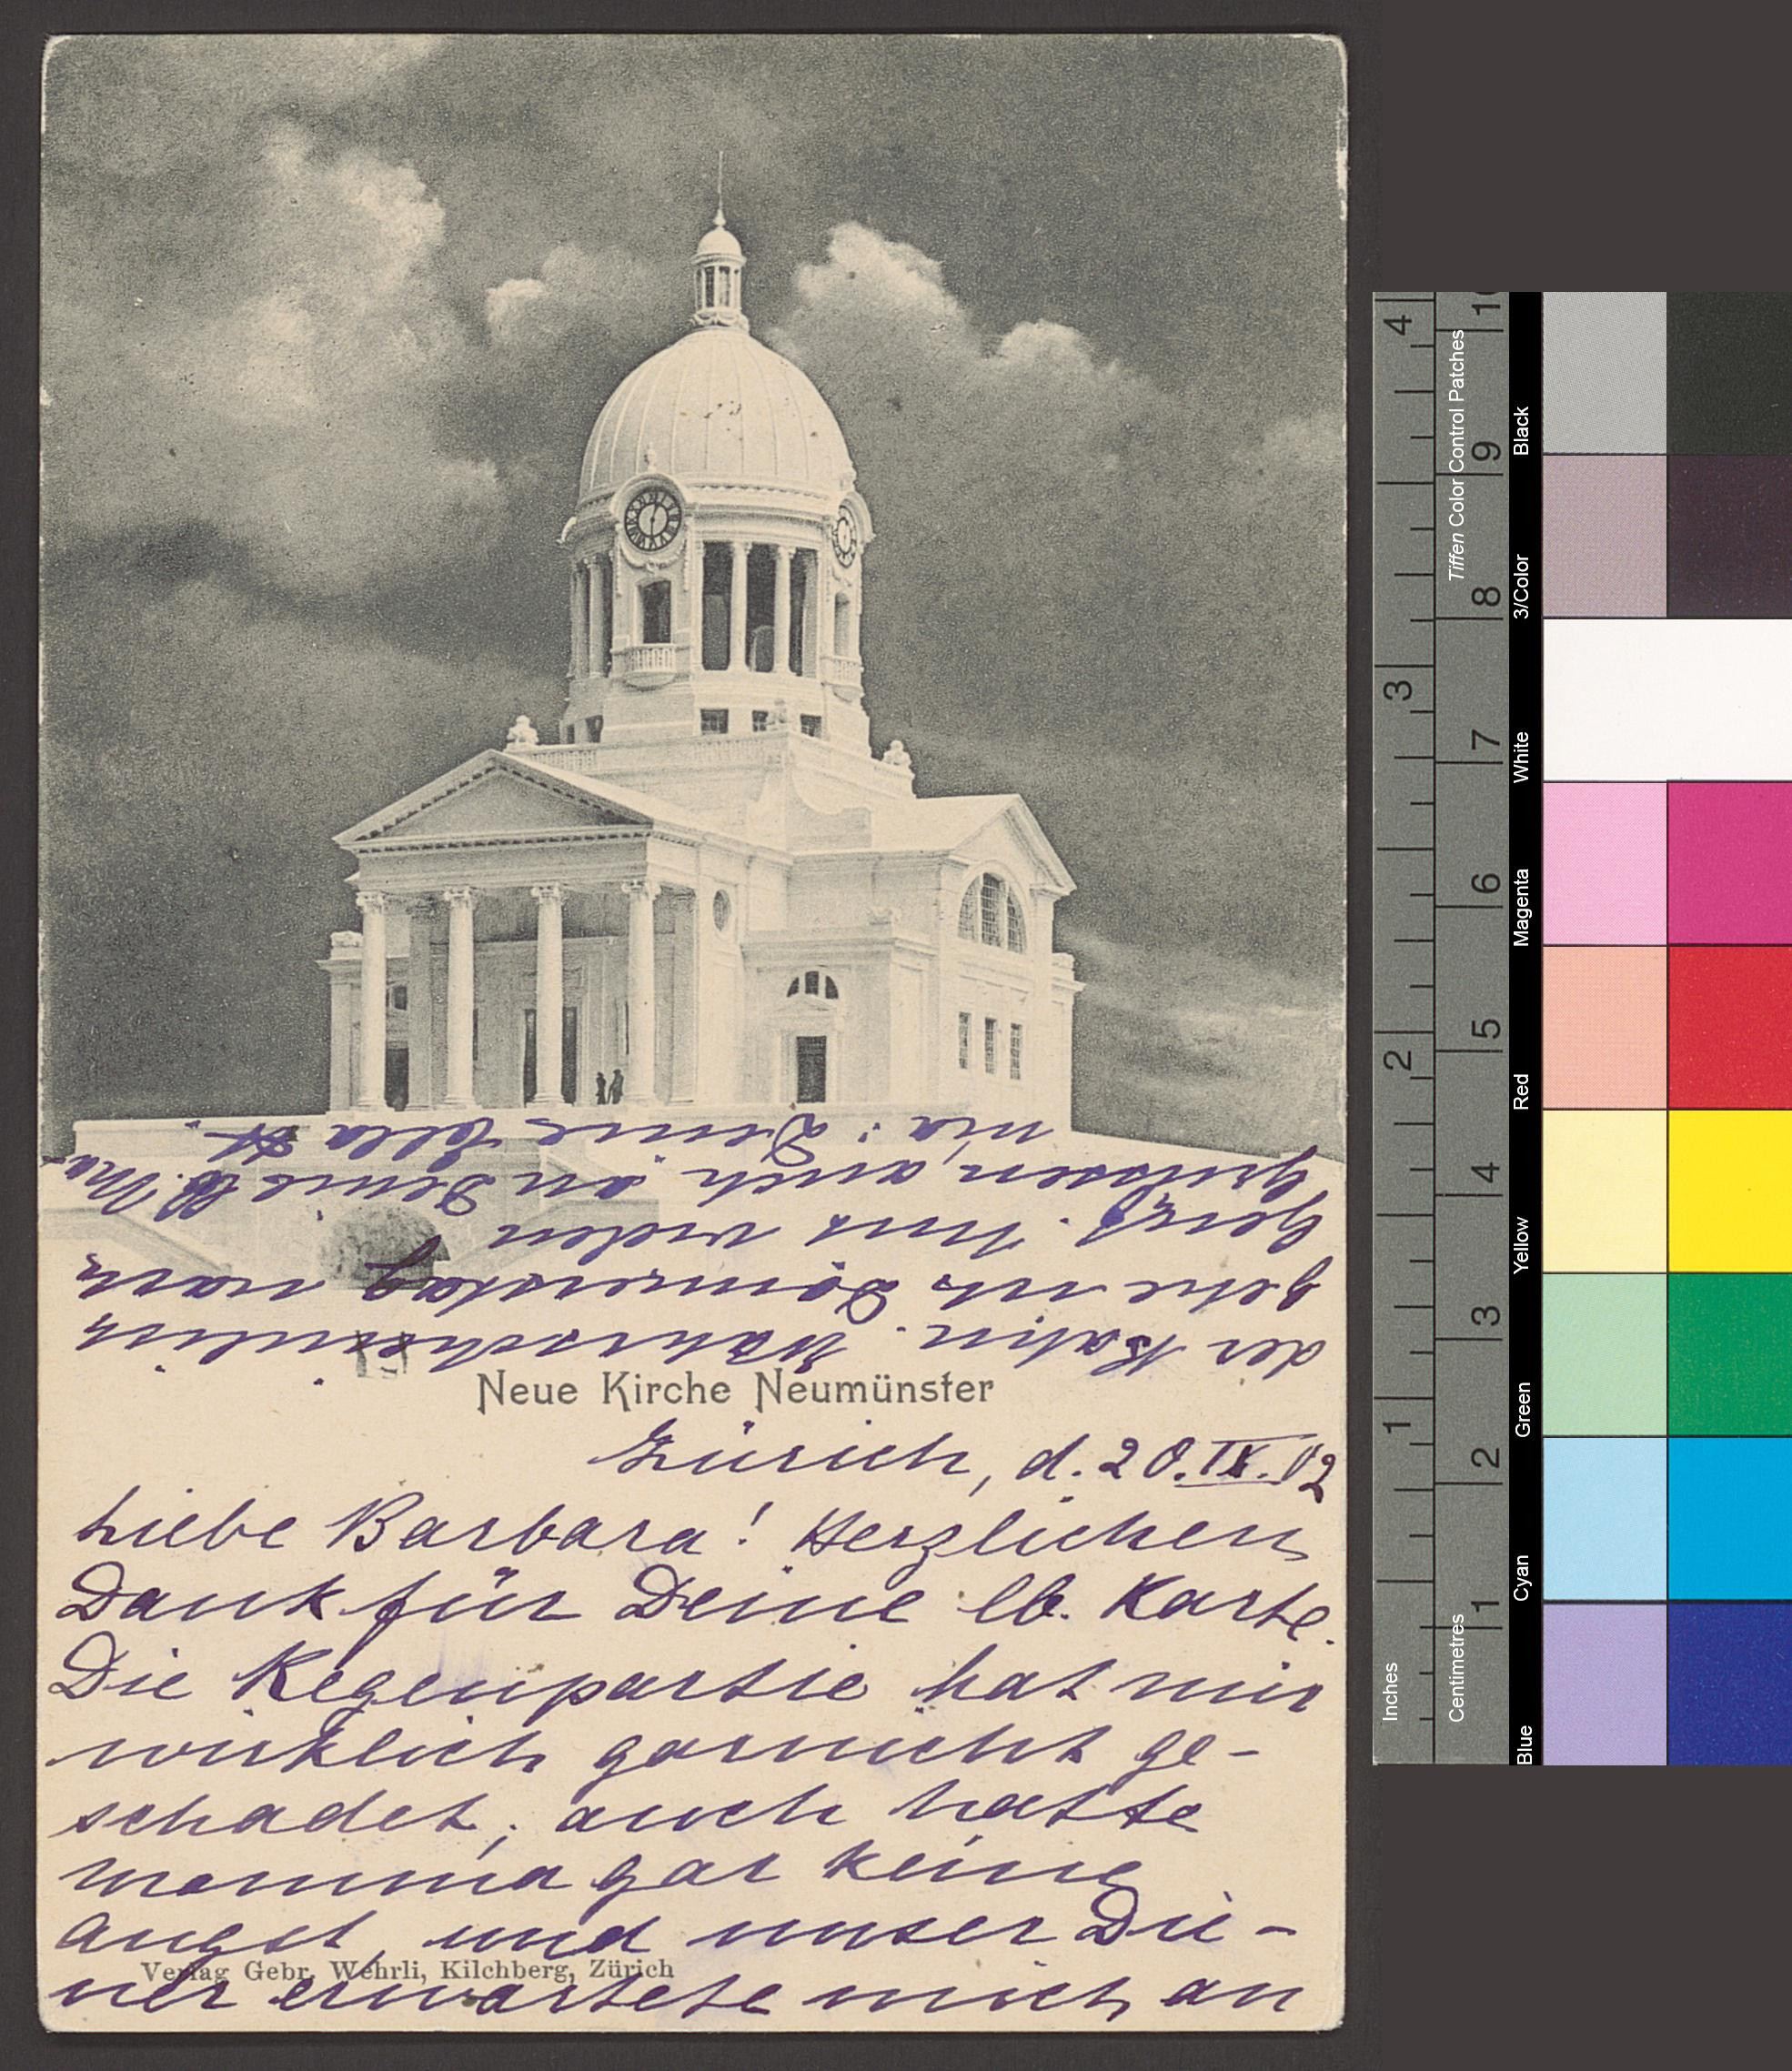 Neue Kirche Neumünster
Zürich, d. 20. IX. 02
Liebe Barbara! Herzlichen
Dank für Deine lb. Karte.
Die Regenpartie hat mir
wirklich garnicht ge-
schadet, auch hatte
Mamma gar keine
Angst, und unser Die-
ner erwartete mich an
der Bahn. Wahrscheinlich
gehe ich Donnerstag nach
Tausend
grüssen, auch an Deine lb. Ma-
ma: Deine Ella H.
Verlag Gebr. Wehrli, Kilchberg, Zürich
Inches
1
2
3
4
Centimetres
1
2
3
4
5
6
7
8
9
10
Tiffen Color Control Patches
Blue
Cyan
Green
Yellow
Red
Magenta
White
3/Color
Black